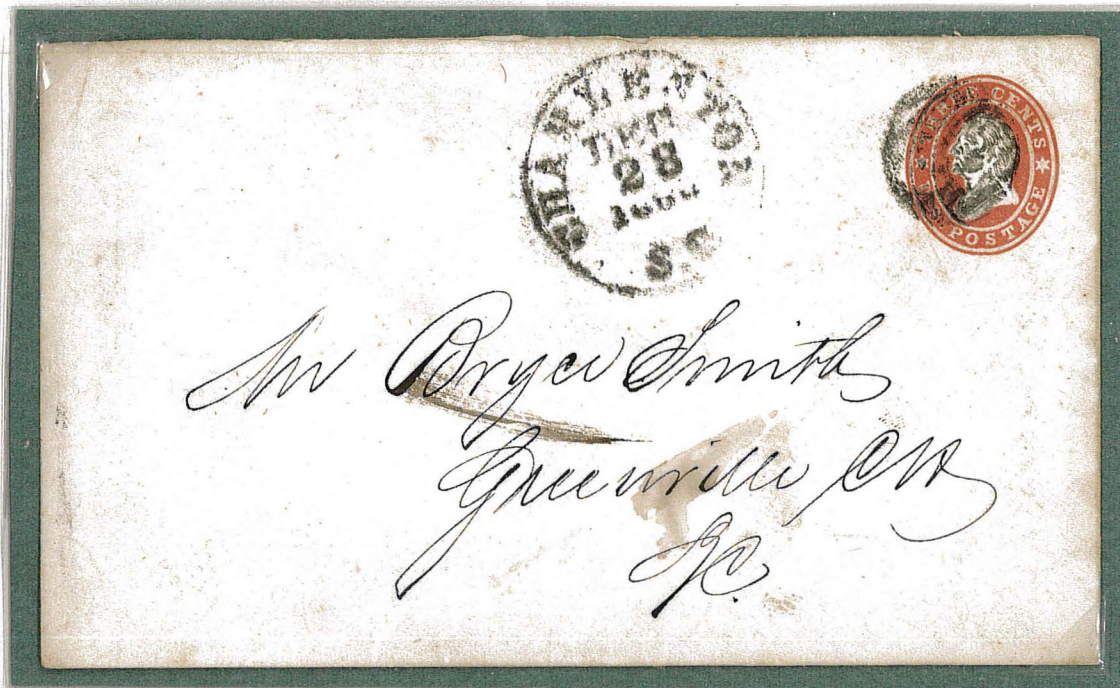 CHARLESTON
DEC
28
S.C
THREE CENTS
U.S. POSTAGE
Mr Bryce Smith
Greenville CH
SC.